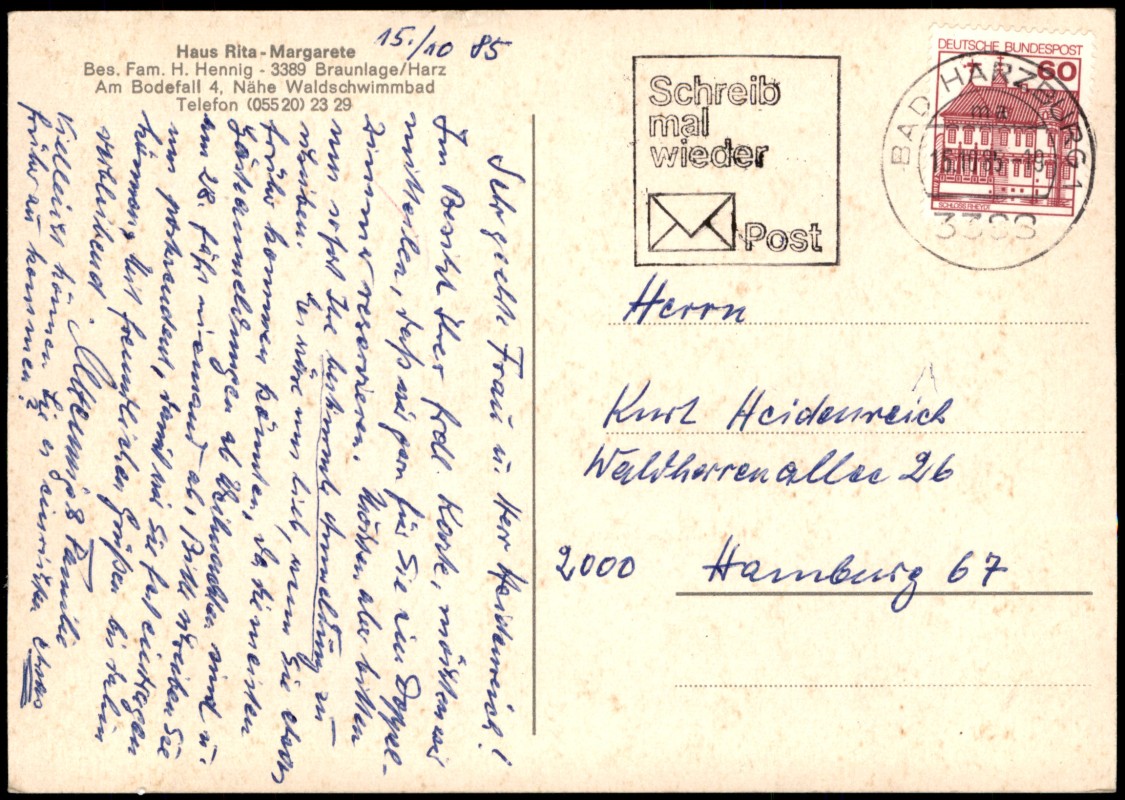 Haus Rita-Margarete
Bes. Fam. H. Hennig - 3389 Braunlage/Harz
Am Bodefall 4, Nähe Waldschwimmbad
Telefon (055 20) 23 29
15./10 85
Sehr geehrt. Frau u. Herr Heidenreich!
Im Besitz Ihrer frdl. Karte, möchten wir
mitteilen, daß wir gern für Sie ein Doppel-
zimmer reservieren. Möchten aber bitten
uns sofort Ihre bestimmte Anmeldung zu
schreiben. Es wäre uns lieb, wenn Sie etwas
früher kommen könnten, da die meisten
Gästeanmeldungen ab Weihnachten sind u.
am 28. fährt niemand ab. Bitte schreiben Sie
uns postwendend, damit wir Sie fest eintragen
können, mit freundlichen Grüßen bis dahin
verbleibend
Familie
Vielleicht können Sie es einrichten etwas
früher zu kommen?
Schreib
mal
wieder
Post
DEUTSCHE BUNDESPOST
60
SCHLOSS RHEYDT
BAD HARZBURG 1
ma
3388
Herrn
Kurt Heidenreich
Waldherrenallee 26
2000 Hamburg 67